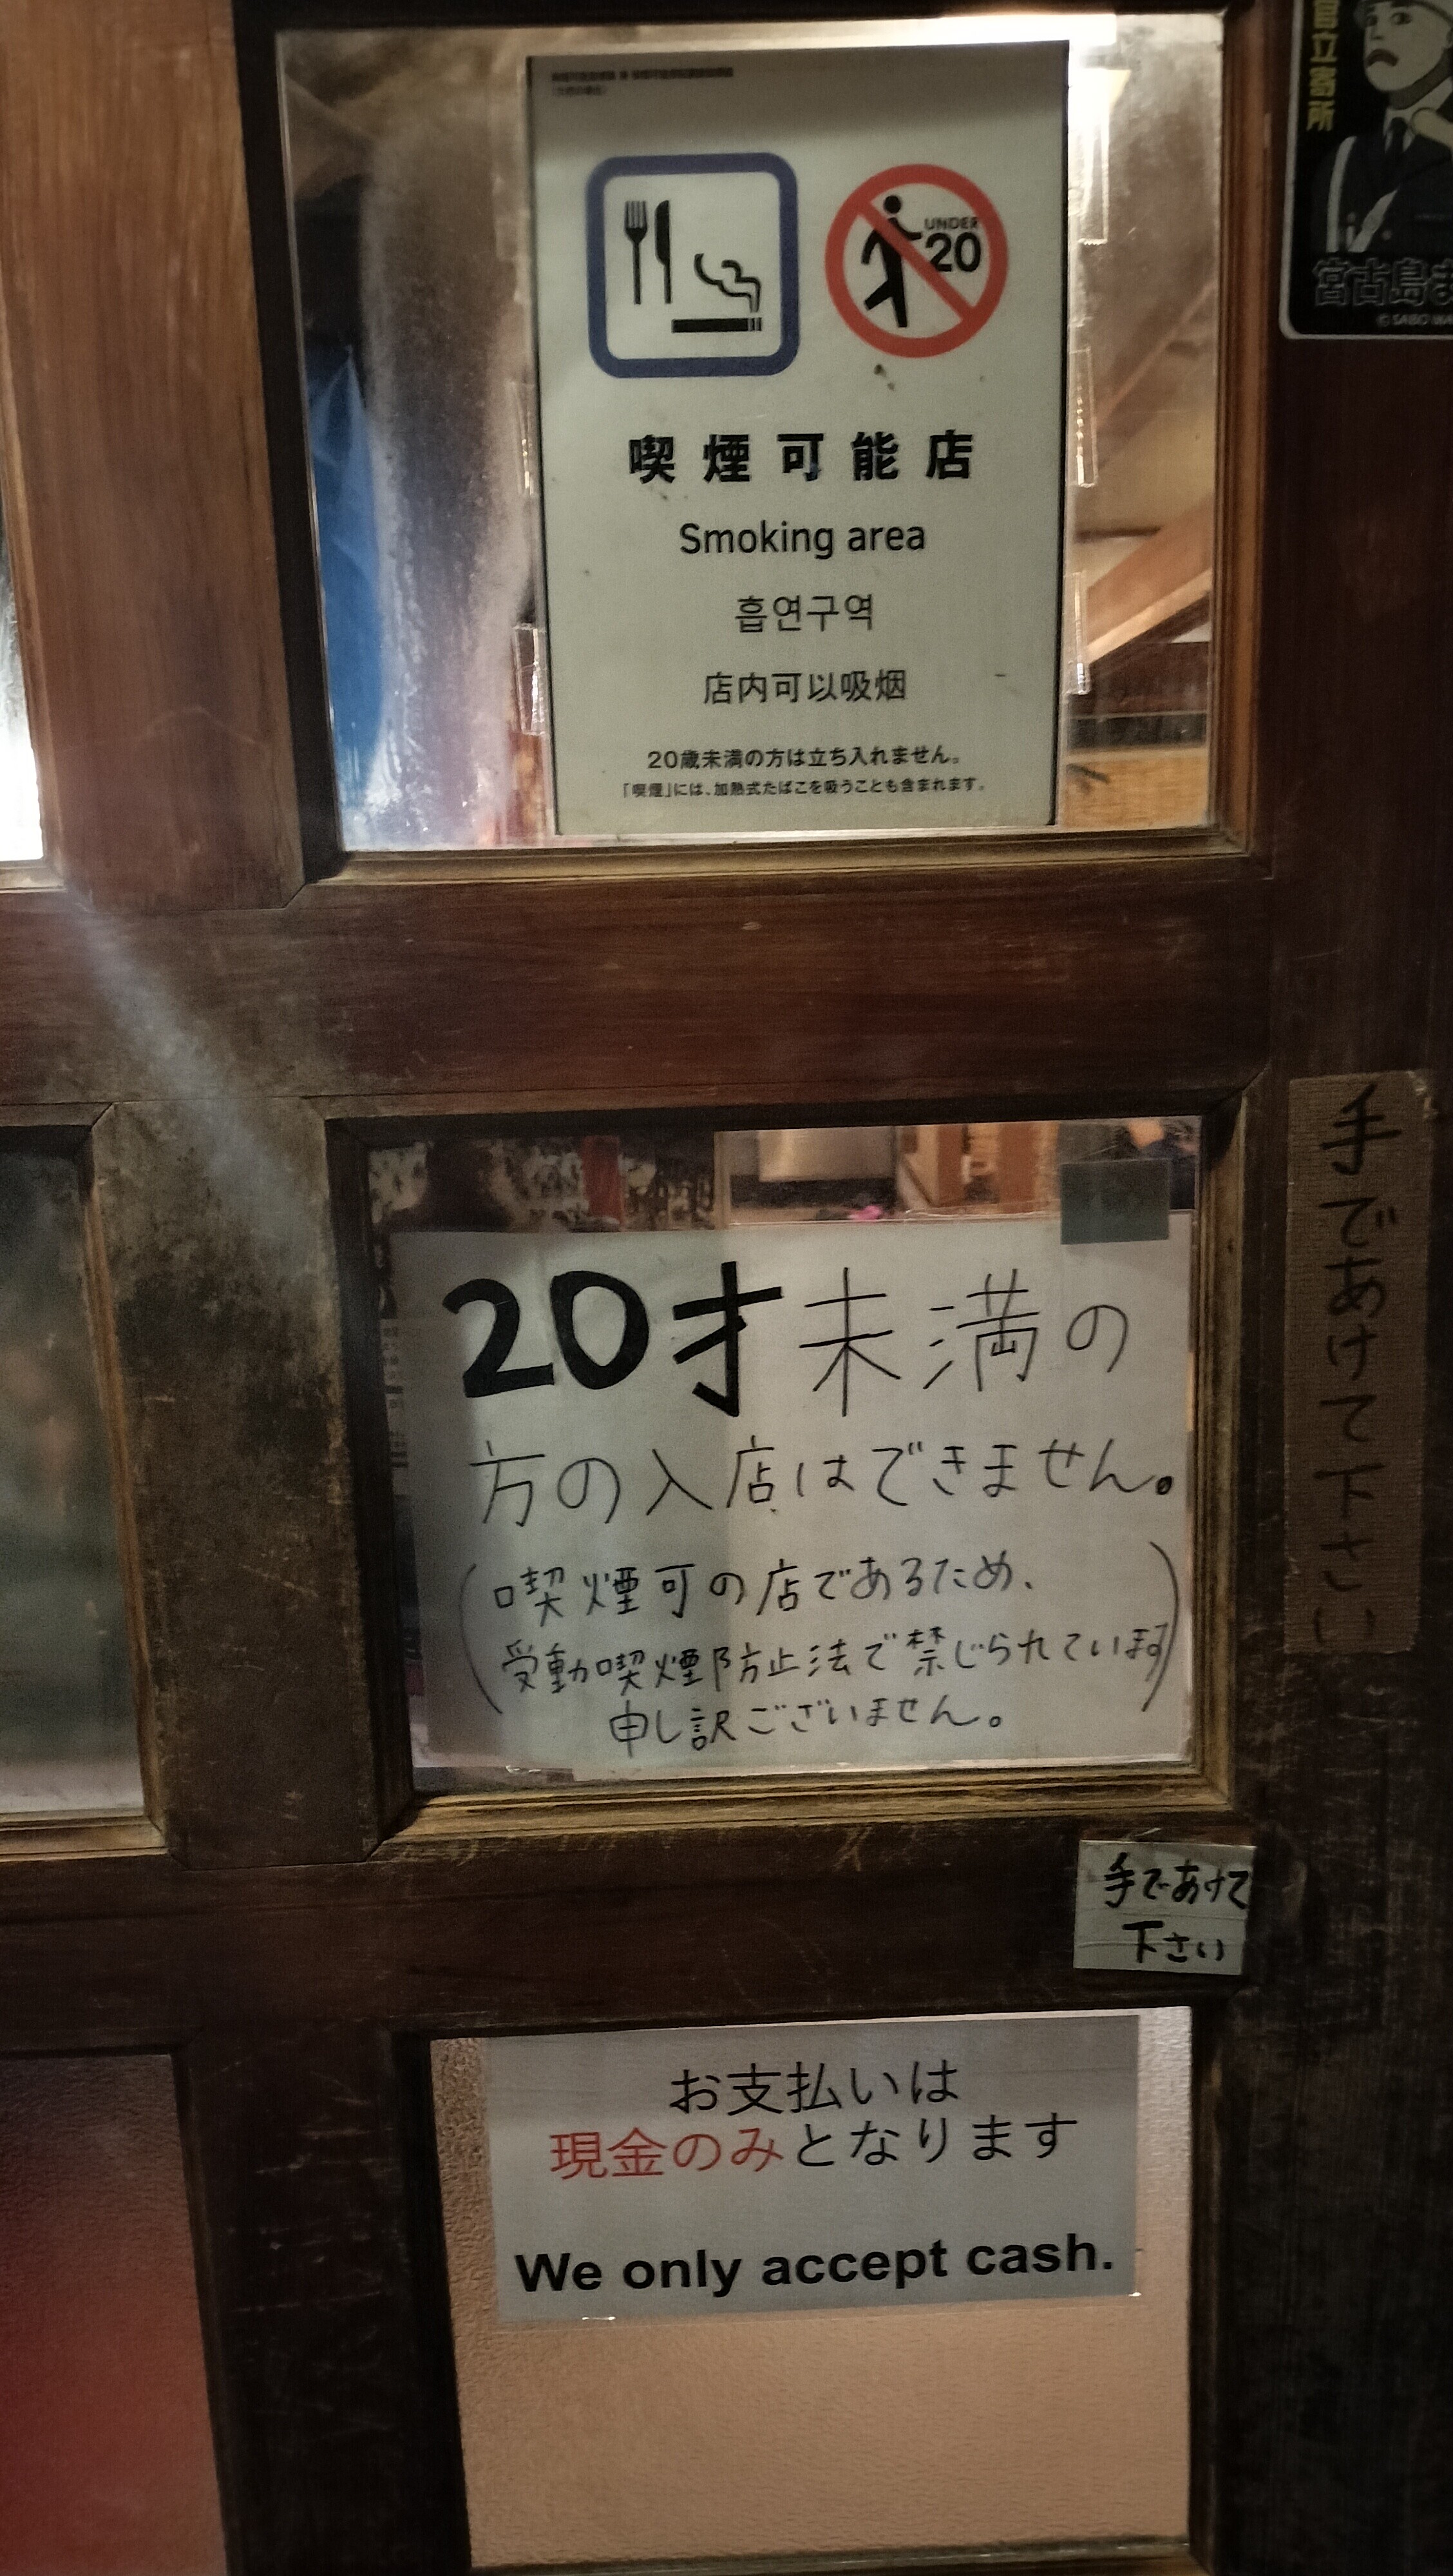 UNDER
20
喫煙可能店
Smoking area
흡연구역
店内可以吸烟
20歳未満の方は立ち入れません。
「喫煙」には、加熱式たばこを吸うことも含まれます。
宮古島ま
20才未満の
方の入店はできません。
(喫煙可の店であるため、
受動喫煙防止法で禁じられています)
申し訳ございません。
手であけて下さい
手であけて
下さい
お支払いは
現金のみとなります
We only accept cash.